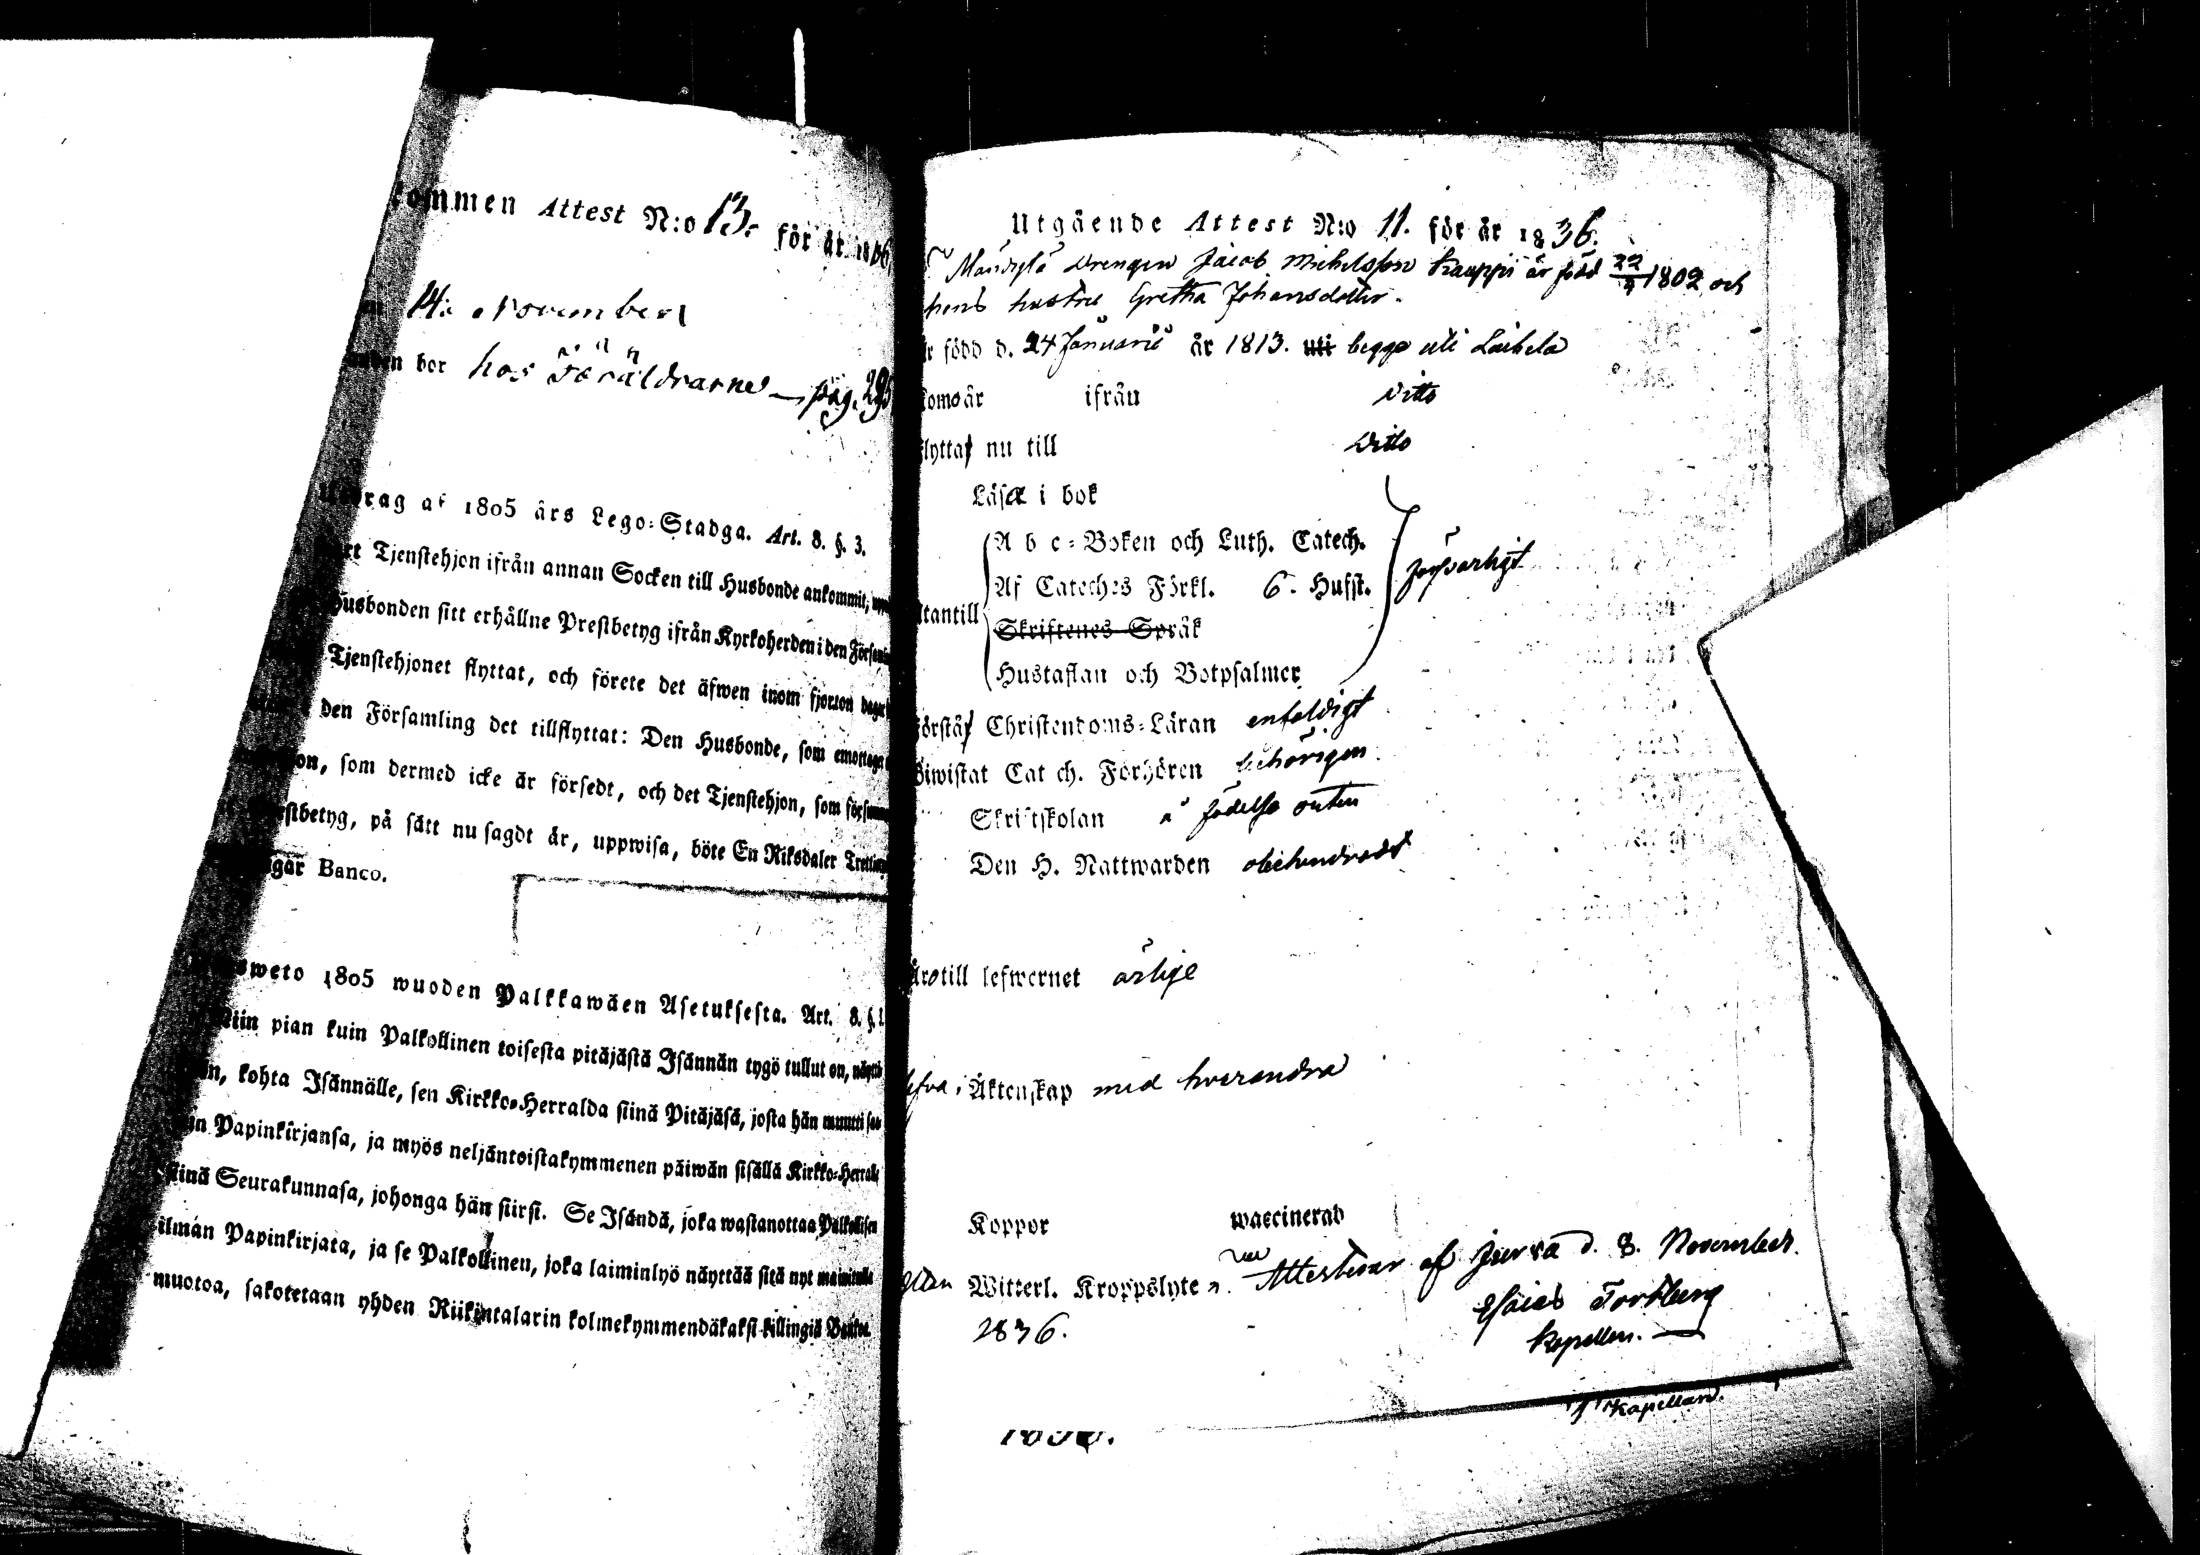 kommen Attest N:o 13. för år 1836
14: November
bor hos Föräldrarne — pag. 295
Utdrag af 1805 års Lego=Stadga. Art. 8. §. 3.
Tjenstehjon ifrån annan Socken till Husbonde ankommit,
Husbonden sitt erhållne Prestbetyg ifrån Kyrkoherden i den
Tjenstehjonet flyttat, och förete det äfwen inom fjorton dagar
den Församling det tillflyttat: Den Husbonde, som emottager
som dermed icke är försedt, och det Tjenstehjon, som
på sätt nu sagdt är, uppwisa, böte En Riksdaler
Banco.
1805 wuoden Palkkawäen Asetuksesta. Art. 8. §.
Niin pian kuin Palkollinen toisesta pitäjästä Isännän tygö tullut on,
kohta Isännälle, sen Kirkko=Herralda siinä Pitäjäsä, josta hän muutti
Papinkirjansa, ja myös neljäntoistakymmenen päiwän sisällä Kirkko=
siinä Seurakunnasa, johonga hän siirsi. Se Isändä, joka wastanottaa Palkollisen
ilman Papinkirjata, ja se Palkollinen, joka laiminlyö näyttää sitä nyt
muotoa, sakotetaan yhden Riikintalarin kolmekymmendäkaksi killingiä
Utgående Attest N:o 11. för år 1836.
Drengen Jacob Michelsson Kauppi är född 22/9 1802 och
hans hustru Gretha Johansdotter.
är född d. 24 Januarii år 1813. uti begge uti Laihela
Komo år ifrån Ditto
flytta nu till Ditto
Läsa i bok
A b c=Boken och Luth. Catech.
Af Cateches Förkl. 6. Hufst. försvarligt
Utantill
Skriftenes Språk
Hustaflan och Botpsalmer
Förstå Christendoms=Läran enfaldigt
Biwistat Catech. Förhören behörigen.
Skriftskolan å födelse orten
Den H. Nattwarden obehindradt
Äro till lefwernet ärlige
lefva i Äktenskap med hvarandra
Koppor waccinerad
utan Witterl. Kroppslyte. Attesterar af Jurva d. 8. November.
1836.
Esaias
Kapellan.
Kapellan.
1836.